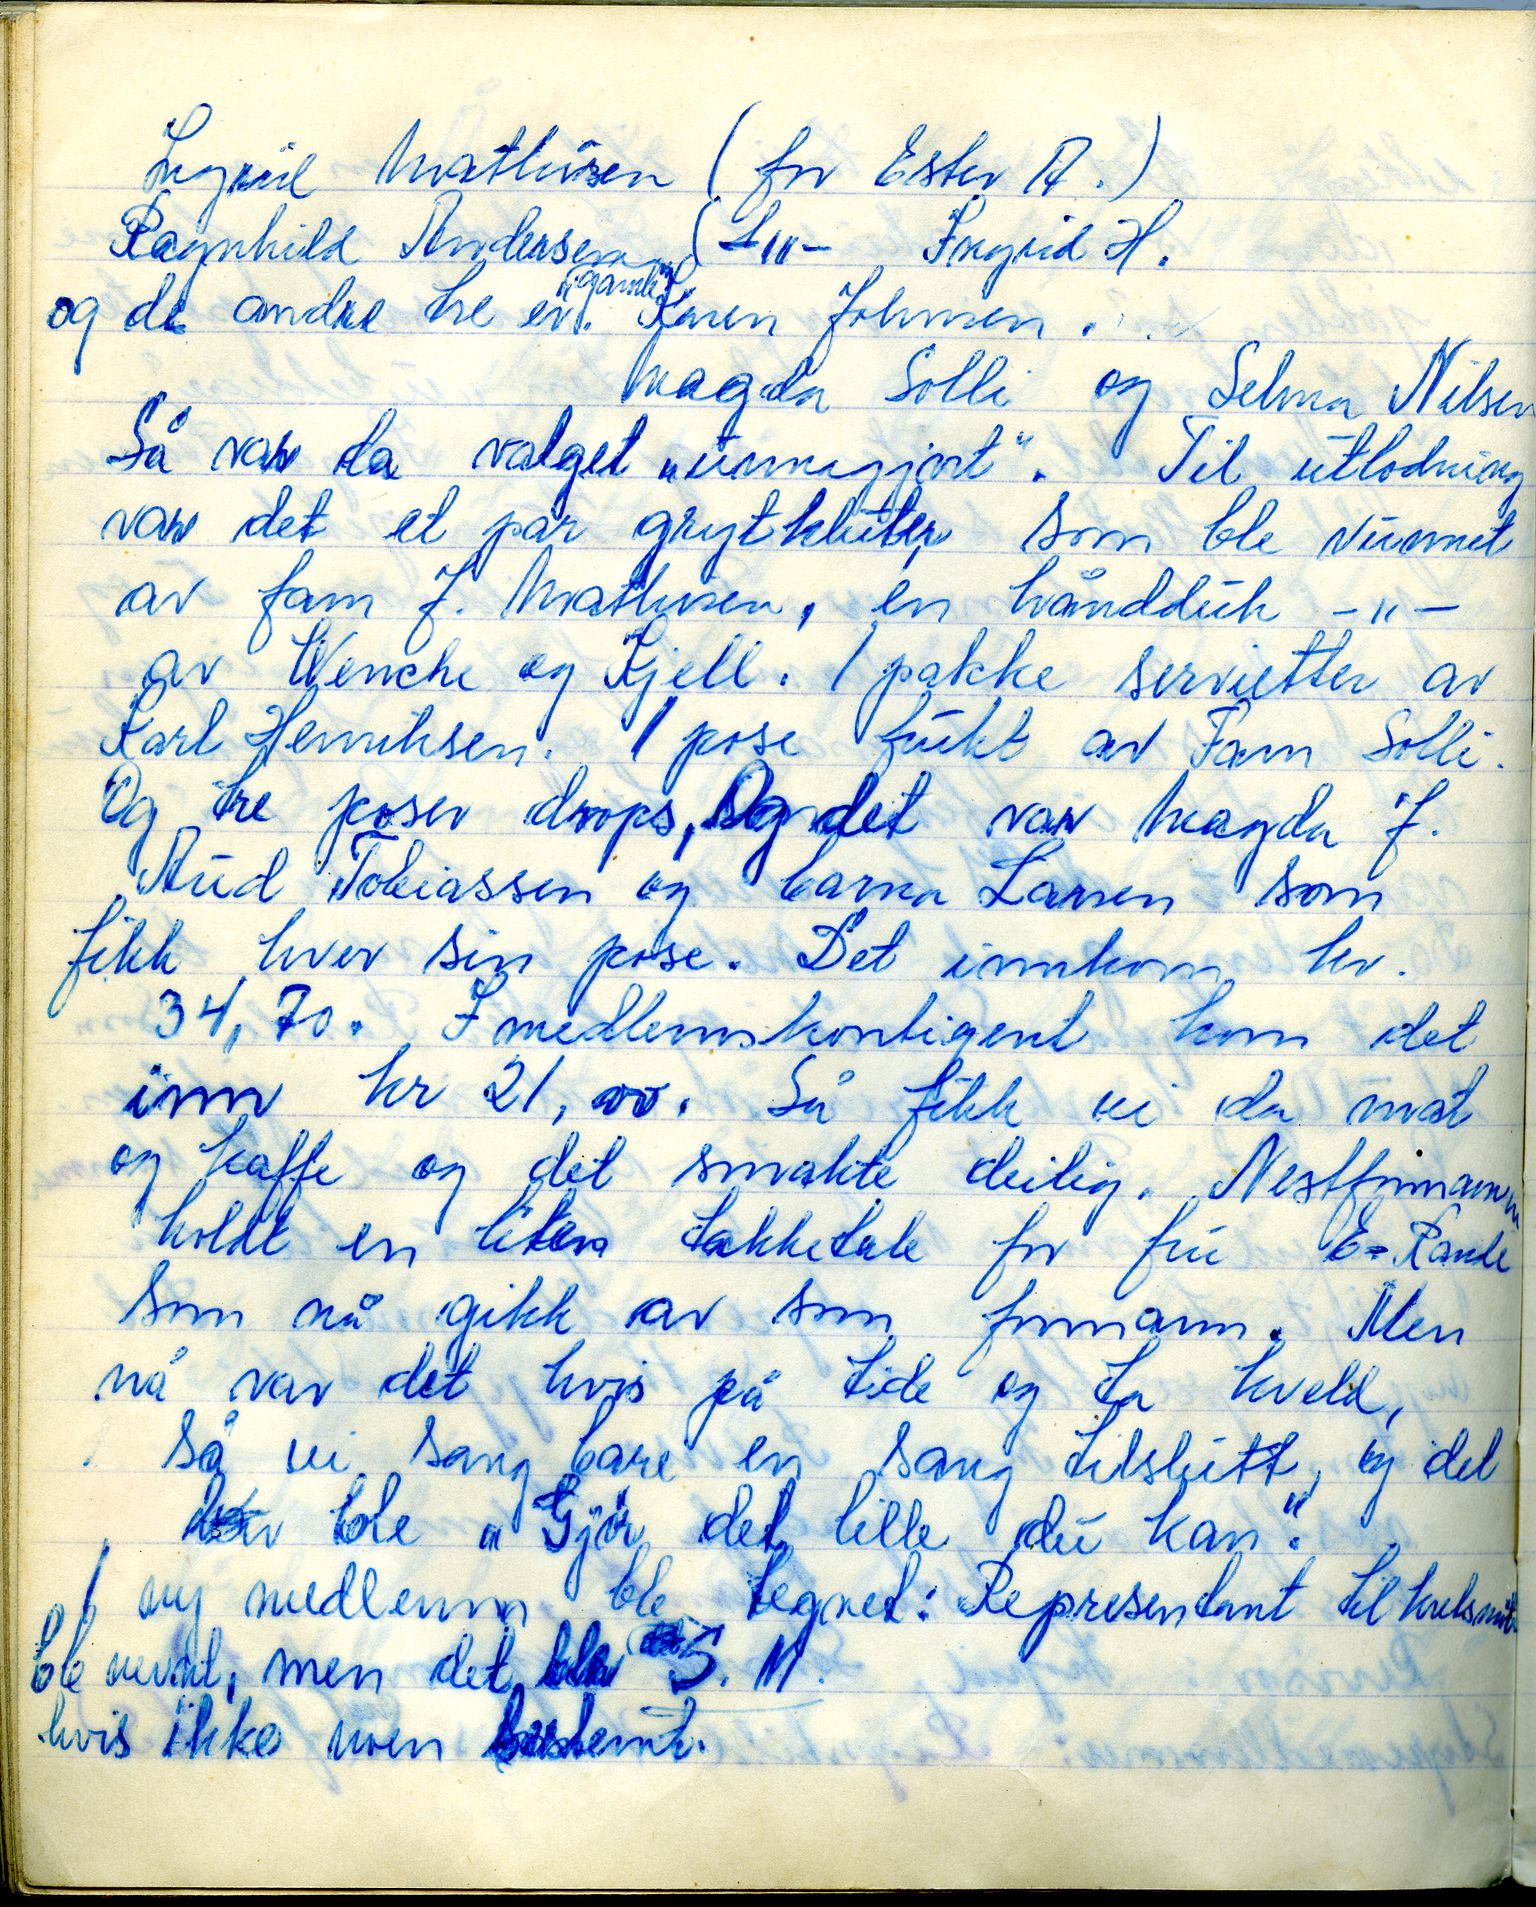 Ingrid Mathisen (for Ester A.)
Ragnhild Andersen (-"- Ingrid H.
og de andre tre er. "gamle" Karen Johnsen.
Magda Solli og Selma Nilsen
Så var da valget „unnagjort". Til utlodning
var det et par grytekluter som ble vunnet
av fam J. Mathisen, en håndduk -"-
av Wenche og Kjell. 1 pakke servietter av
Karl Henriksen. 1 pose frukt av Fam Solli.
Og tre poser drops, Og det var Magda J.
Aud Tobiassen og barna Larsen som
fikk hver sin pose. Det innkom kr.
34,70. I medlemskontigent kom det
inn kr 21,00. Så fikk vi da mat
og kaffe og det smakte deilig. Nestformannen
holdt en liten takketale for fru E. Rande
som nå gikk av som formann. Men
nå var det hvis på tide og ta kveld,
så vi sang bare en sang tilslutt, og det
ble „Gjør det lille du kan".
1 ny medlemm ble tegnet: Representant til kretsmøte
ble nevnt, men det ble S. M.
hvis ikke noen bestemt.